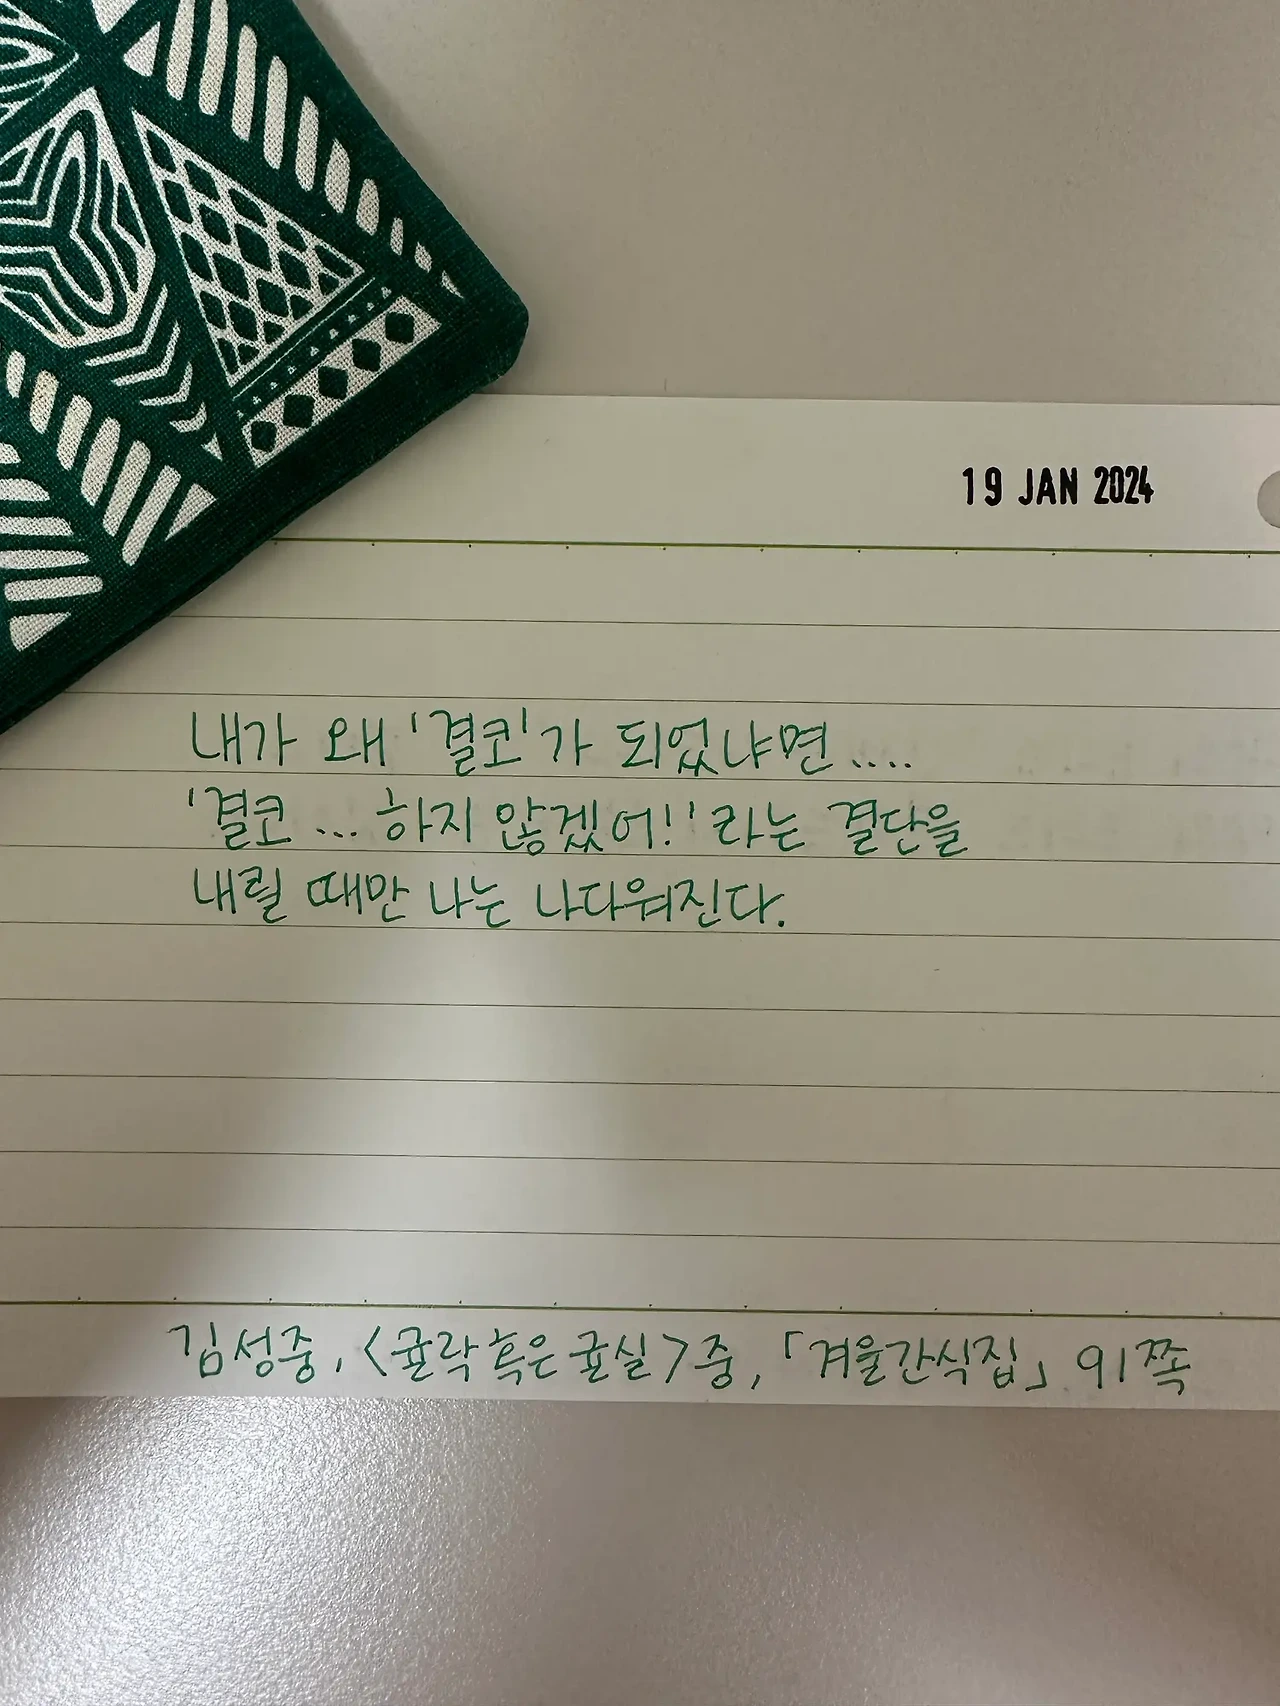 19 JAN 2024
내가 왜 '결코'가 되었냐면....
'결코 ... 하지 않겠어!' 라는 결단을
내릴 때만 나는 나다워진다.
김성중, <귤락 혹은 귤실>중, 「겨울간식집」 91쪽